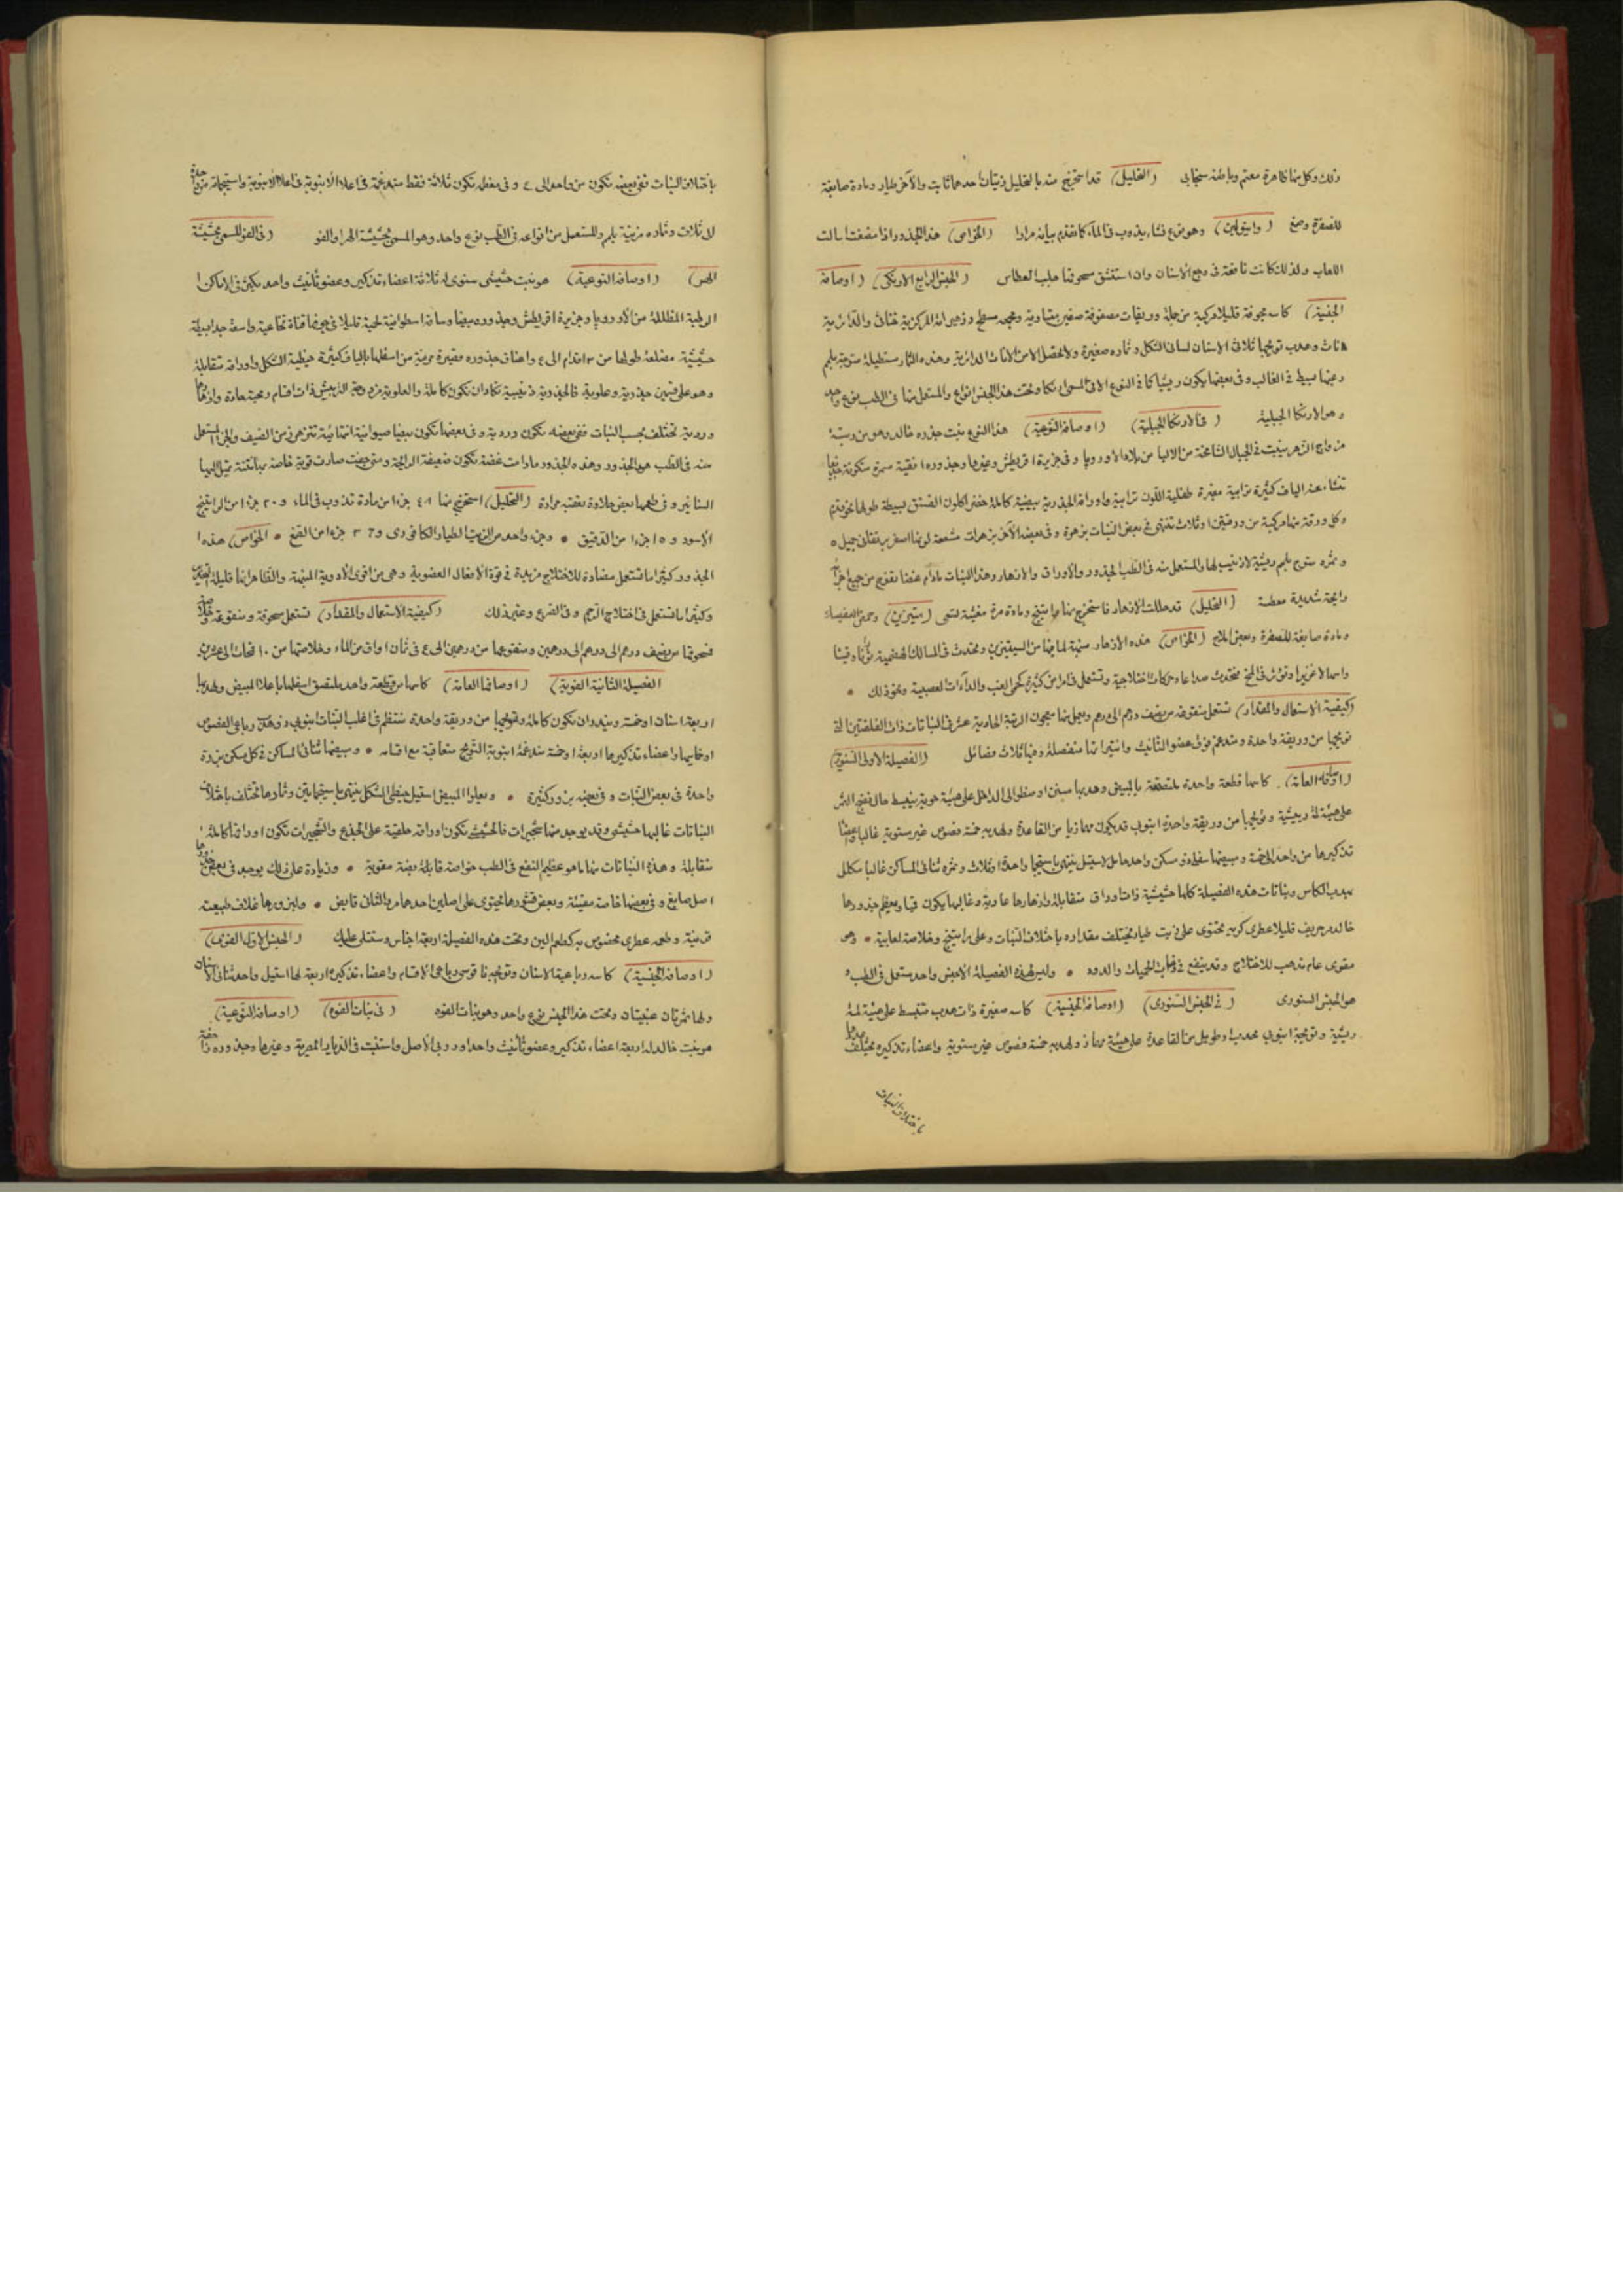 ذلك وكل منها ظاهره معتم وباطنه سنجابى (التحليل) قد استخرج منه بالتحليل زيتان احدهما ثابت والآخر طيار ومادة صابغة
للصفرة وصمغ (واينولين) وهو نوع نشا يذوب فى الماء كما تقدم بيانه مرارا (الخواص) هذه الجذور اذا مضغت اسالت
اللعاب ولذلك كانت نافعة فى وجع الاسنان وان استنشق مسحوقها جلب العطاس (الجنس الرابع الارنكى) (اوصافه
الجنسية) كاسه مجوفة قليلا مركبة من جملة وريقات مصفوفة صفين متساوية ومجمعه مسطح وزهيراته المركزية خناثى والدائرية
اناث وهدب تويجها ثلاثى الاسنان لسانى الشكل وثماره صغيرة ولا تحصل الا من الاناث الدائرية وهذه الثمار مستطيلة متوجة بلمم
وهو الارنكا الجبلية (فى الارنكا الجبلية) (اوصافه النوعية) هذا النوع ينبت جذوره خالد وهو من رتبة
مزواج الزهر ينبت فى الجبال الشامخة من الالبا من بلاد الاوروپا وفى جزيرة اقريطش وغيرها وجذوره افقية سمرة متكونة
تنشأ عنه الياف كثيرة ترابية مغبرة طفلية اللون ترابية واوراقه الجذرية بيضية كاملة خضر كلون الفستق بسيطة طولها نحو قدم
وكل ورقة منها مركبة من ورقتين او ثلاث تنتهى فى بعض النبات بزهرة وفى بعضه الآخر بزهرات مشعة لونها اصفر برتقانى جميل
وثمره متوج بلمم ريشية لا ذنيب لها والمستعمل منه فى الطب الجذور والاوراق والازهار وهذا النبات مادام غضا تفوح من جميع اجزائه
رائحة شديدة معطسة (التحليل) قد حللت الازهار فاستخرج منها راتينج ومادة مرة مغثية تسمى (ستيزين) وحمض العفصيك
ومادة صابغة للصفرة وبعض املاح (الخواص) هذه الازهار منبهة لما فيها من السيتيزين وتحدث فى المسالك الهضمية تأثيرا وقيئا
واسهالا غزيرا وتؤثر فى المخ فتحدث صداعا وحركات اختلاجية وتستعمل فى امراض كثيرة كحمى الغب والداآت العصبية ونحو ذلك
(كيفية الاستعمال والمقدار) تستعمل منقوعه من نصف درهم الى درهم ويعمل منها معجون الرتبة الحادية عشر فى النباتات ذات الفلقتين التى
تويجها من وريقة واحدة ومندغم فوق عضو التأنيث وانتيراتها منفصلة وفيها ثلاث فصائل (الفصيلة الاولى السنورية)
(اوصافها العامة) كاسها قطعة واحدة ملتصقة بالمبيض وهدبها مسنن او منطو الى الداخل على هيئة حوية ينبسط حال نضج الثمر
على هيئة لمة ريشية وتويجها من وريقة واحدة انبوبى قد يكون مهمازيا من القاعدة ولهدبه خمسة فصوص غير مستوية غالبا واعضاء
تذكيرها من واحد الى خمسة ومبيضها سفلى ذو مسكن واحد حامل لاستيل ينتهى باستجما واحدة او ثلاث وثمره ثنائى المساكن غالبا مكلل
بهدب الكاس ونباتات هذه الفصيلة كلها حشيشية ذات اوراق متقابلة وازهارها عارية وغالبها يكون قيا ومعظم جذورها
خالدة حريف قليلا عطرى كريه محتوى على زيت طيار مختلف مقداره باختلاف النبات وعلى راتينج وخلاصة لعابية • وهى
مقوى عام تذهب للاختلاج وقد ينفع فى الحميات والدود • وليس لهذه الفصيلة الا جنس واحد مستعمل فى الطب
هو الجنس السنورى (فى الجنس السنورى) (اوصافه الجنسية) كاسه صغيرة ذات هدب منبسط على هيئة لمة
ريشية وتويجية انبوبى محدب او طويل من القاعدة على هيئة مهماز ولهدبه خمسة فصوص غير مستوية واعضاء تذكيره مختلف عددها
باختلاف النبات
باختلاف النبات ففى بعضه تكون من واحد الى ٤ وفى معظمه تكون ثلاثة فقط مندغمة فى اعلا الانبوبة واستجماته من واحدة
لثلاث وثماره مزينة بلمم والمستعمل من انواعه فى الطب نوع واحد وهو المسمى بحشيشة الهر او الفو (فى الفو المسمى بحشيشة
الهر) (اوصافه النوعية) هو نبت حشيشى سنوى له ثلاثة اعضاء تذكير وعضو تأنيث واحد يكثر فى الاماكن
الرطبة المظللة من الاوروپا وجزيرة اقريطش وجذوره بيضا وساقه اسطوانية لحمية قليلا فى جوفها قناة نخاعية واسعة جدا
حشيشية مضلعة طولها من ٣ اقدام الى ٤ واعناق جذوره قصيرة مزينة من اسفلها بالياف كثيرة خيطية الشكل واوراقه متقابلة
وهو على قسمين جذرية وعلوية فالجذرية ذنيبية تكاد ان تكون كاملة والعلوية مزدوجة التريش ذات اقسام رمحية حادة وازهارها
وردية تختلف بحسب النبات ففى بعضه تكون وردية وفى بعضها تكون بيضا صيوانية انتهائية تتزهر زمن الصيف والجزء المستعمل
منه فى الطب هو الجذور وهذه الجذور مادامت غضة تكون ضعيفة الرائحة ومتى جفت صارت قوية خاصة منتنة تميل اليها
السنانير وفى طعمها بعض حلاوة يعقبه مرارة (التحليل) استخرج منها ٤٨ جزءا من مادة تذوب فى الماء و٢٠ جزءا من الراتينج
الاسود و١٥ جزءا من الدقيق • وجزء واحد من الزيت الطيار الكافورى و٦٣ جزءا من الصمغ • (الخواص) هذه
الجذور كثيرا ما تستعمل مضادة للاختلاج مزيدة فى قوة الافعال العضوية وهى من اقوى الادوية المنبهة والظاهر انها قليلة
وكثيرا ما تستعمل فى اختلاج الرحم وفى الصرع وغير ذلك (كيفية الاستعمال والمقدار) تستعمل مسحوقة ومنقوعة وخلاصة
فمسحوقها من نصف درهم الى درهمين ومنقوعها من درهمين الى ٤ فى ثمان اواق من الماء وخلاصتها من ١٠ قمحات الى عشرين
الفصيلة الثانية الفوية) (اوصافها العامة) كاسها من قطعة واحدة ملتصق اسفلها باعلا المبيض ولهدبها
اربعة اسنان او خمسة ويندر ان تكون كاملة وتويجها من وريقة واحدة منتظم فى اغلب النبات انبوبى وذو هدب رباعى الفصوص
او خماسيها واعضاء تذكيرها اربعة او خمسة مندغمة بانبوبة التويج متعاقبة مع اقسامه • ومبيضها ثنائى المساكن فى كل مسكن بزرة
واحدة فى بعض النبات وفى بعضه بزور كثيرة • ويعلوا المبيض استيل خيطى الشكل ينتهى باستجماتين وثمارها تختلف باختلاف
النباتات غالبها حشيشى وقد يوجد منها شجيرات فالحشيشى تكون اوراقه حلقية على الجذع والشجيرات تكون اوراقها كاملة
متقابلة • وهذه النباتات منها ما هو عظيم النفع فى الطب خواصه قابلة مقوية • وزيادة على ذلك يوجد فى بعض جذورها
اصل صابغ وفى بعضها خاصة مقيئة وبعض قشورها محتوى على اصلين احدهما مر والثانى قابض • ولبزورها غلاف طبيعته
قرنية وطعمه عطرى مخصوص به كطعم البن وتحت هذه الفصيلة اربعة اجناس وستتلى عليك (الجنس الاول الفوى)
(اوصافه الجنسية) كاسه رباعية الاسنان وتويجه ناقوسى رباعى الاقسام واعضاء تذكيره اربعة لها استيل واحد ثنائى الاسنان
ولها ثمرتان عنبيتان وتحت هذا الجنس نوع واحد وهو نبات الفوه (فى نبات الفوه) (اوصافه النوعية)
هو نبت خالد له اربعة اعضاء تذكير وعضو تأنيث واحد اوروپى الاصل واستنبت فى الديار المصرية وغيرها وجذوره